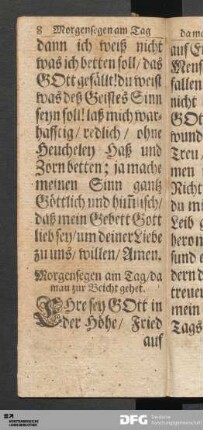 8 Morgensegen am Tag
dann ich weiß nicht
was ich betten soll / das
GOtt gefällt! du weist
was deß Geistes Sinn
seyn soll! laß mich war-
hafftig / redlich / ohne
Heucheley Haß und
Zorn betten; ja mache
meinen Sinn gantz
Göttlich und him̃lisch /
daß mein Gebett Gott
lieb sey / um deiner Liebe
zu uns / willen / Amen.
Morgensegen am Tag / da
man zur Beicht gehet.
EHre sey GOtt in
der Höhe / Fried
auf
da ma
auf E
Mens
fallen
nicht
GOt
wund
Treu /
men
Nicht
du mi
Leib g
heron
sund e
dern d
treuer
mein
Tags
DFG